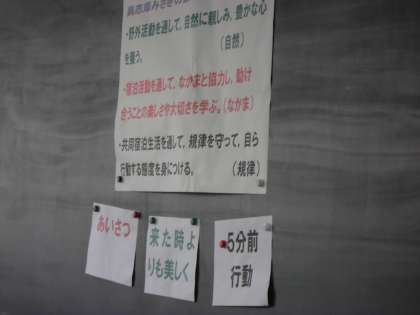 ・野外活動を通して、自然に親しみ、豊かな心
を養う。　　　（自然）
・宿泊活動を通して、なかまと協力し、助け
合うことの楽しさや大切さを学ぶ。（なかま）
・共同宿泊生活を通して、規律を守って、自ら
行動する態度を身につける。　　（規律）
あいさつ
来た時よ
りも美しく
5分前
行動